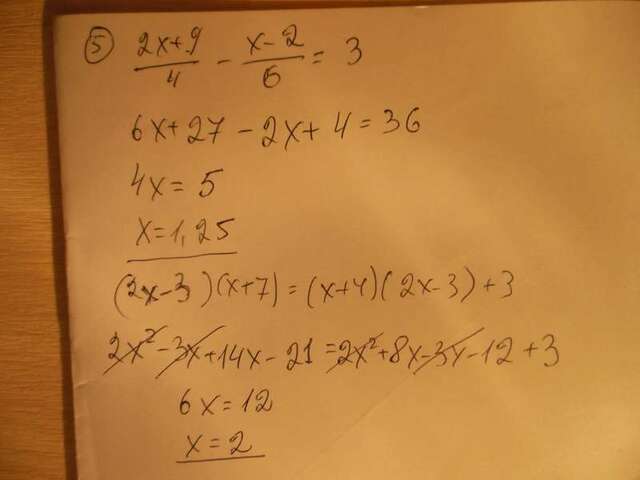 5 (2x+9)/4 - (x-2)/6 = 3
6x+27-2x+4=36
4x=5
x=1,25
(2x-3)(x+7)=(x+4)(2x-3)+3
2x²-3x+14x-21=2x²+8x-3x-12+3
6x=12
x=2